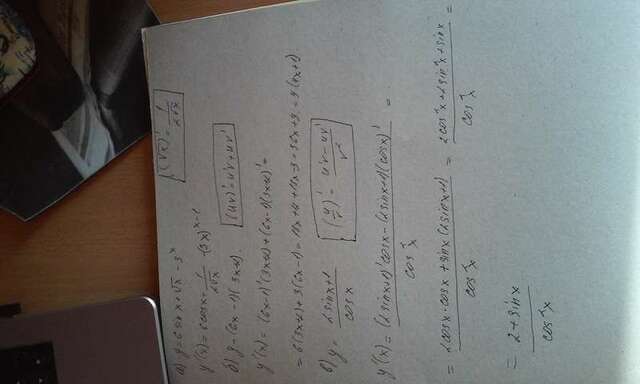 а) y = 6 sin x + √x - 3^x   (√x)' = 1/(2√x)
y'(x) = 6cosx + 1/(2√x) - (3x)^(x-1)
б) y = (6x-1)(3x+2)   (uv)' = u'v + uv'
y'(x) = (6x-1)'(3x+2) + (6x-1)(3x+2)' =
= 6(3x+2) + 3(6x-1) = 18x+12+18x-3 = 36x+9 = 9(4x+1)
в) y = (2sinx+1)/cosx   (u/v)' = (u'v - uv')/v²
y'(x) = ((2sinx+1)'cosx - (2sinx+1)(cosx)')/cos²x =
= (2cosx·cosx + sinx(2sinx+1))/cos²x = (2cos²x + 2sin²x + sinx)/cos²x =
= (2+sinx)/cos²x